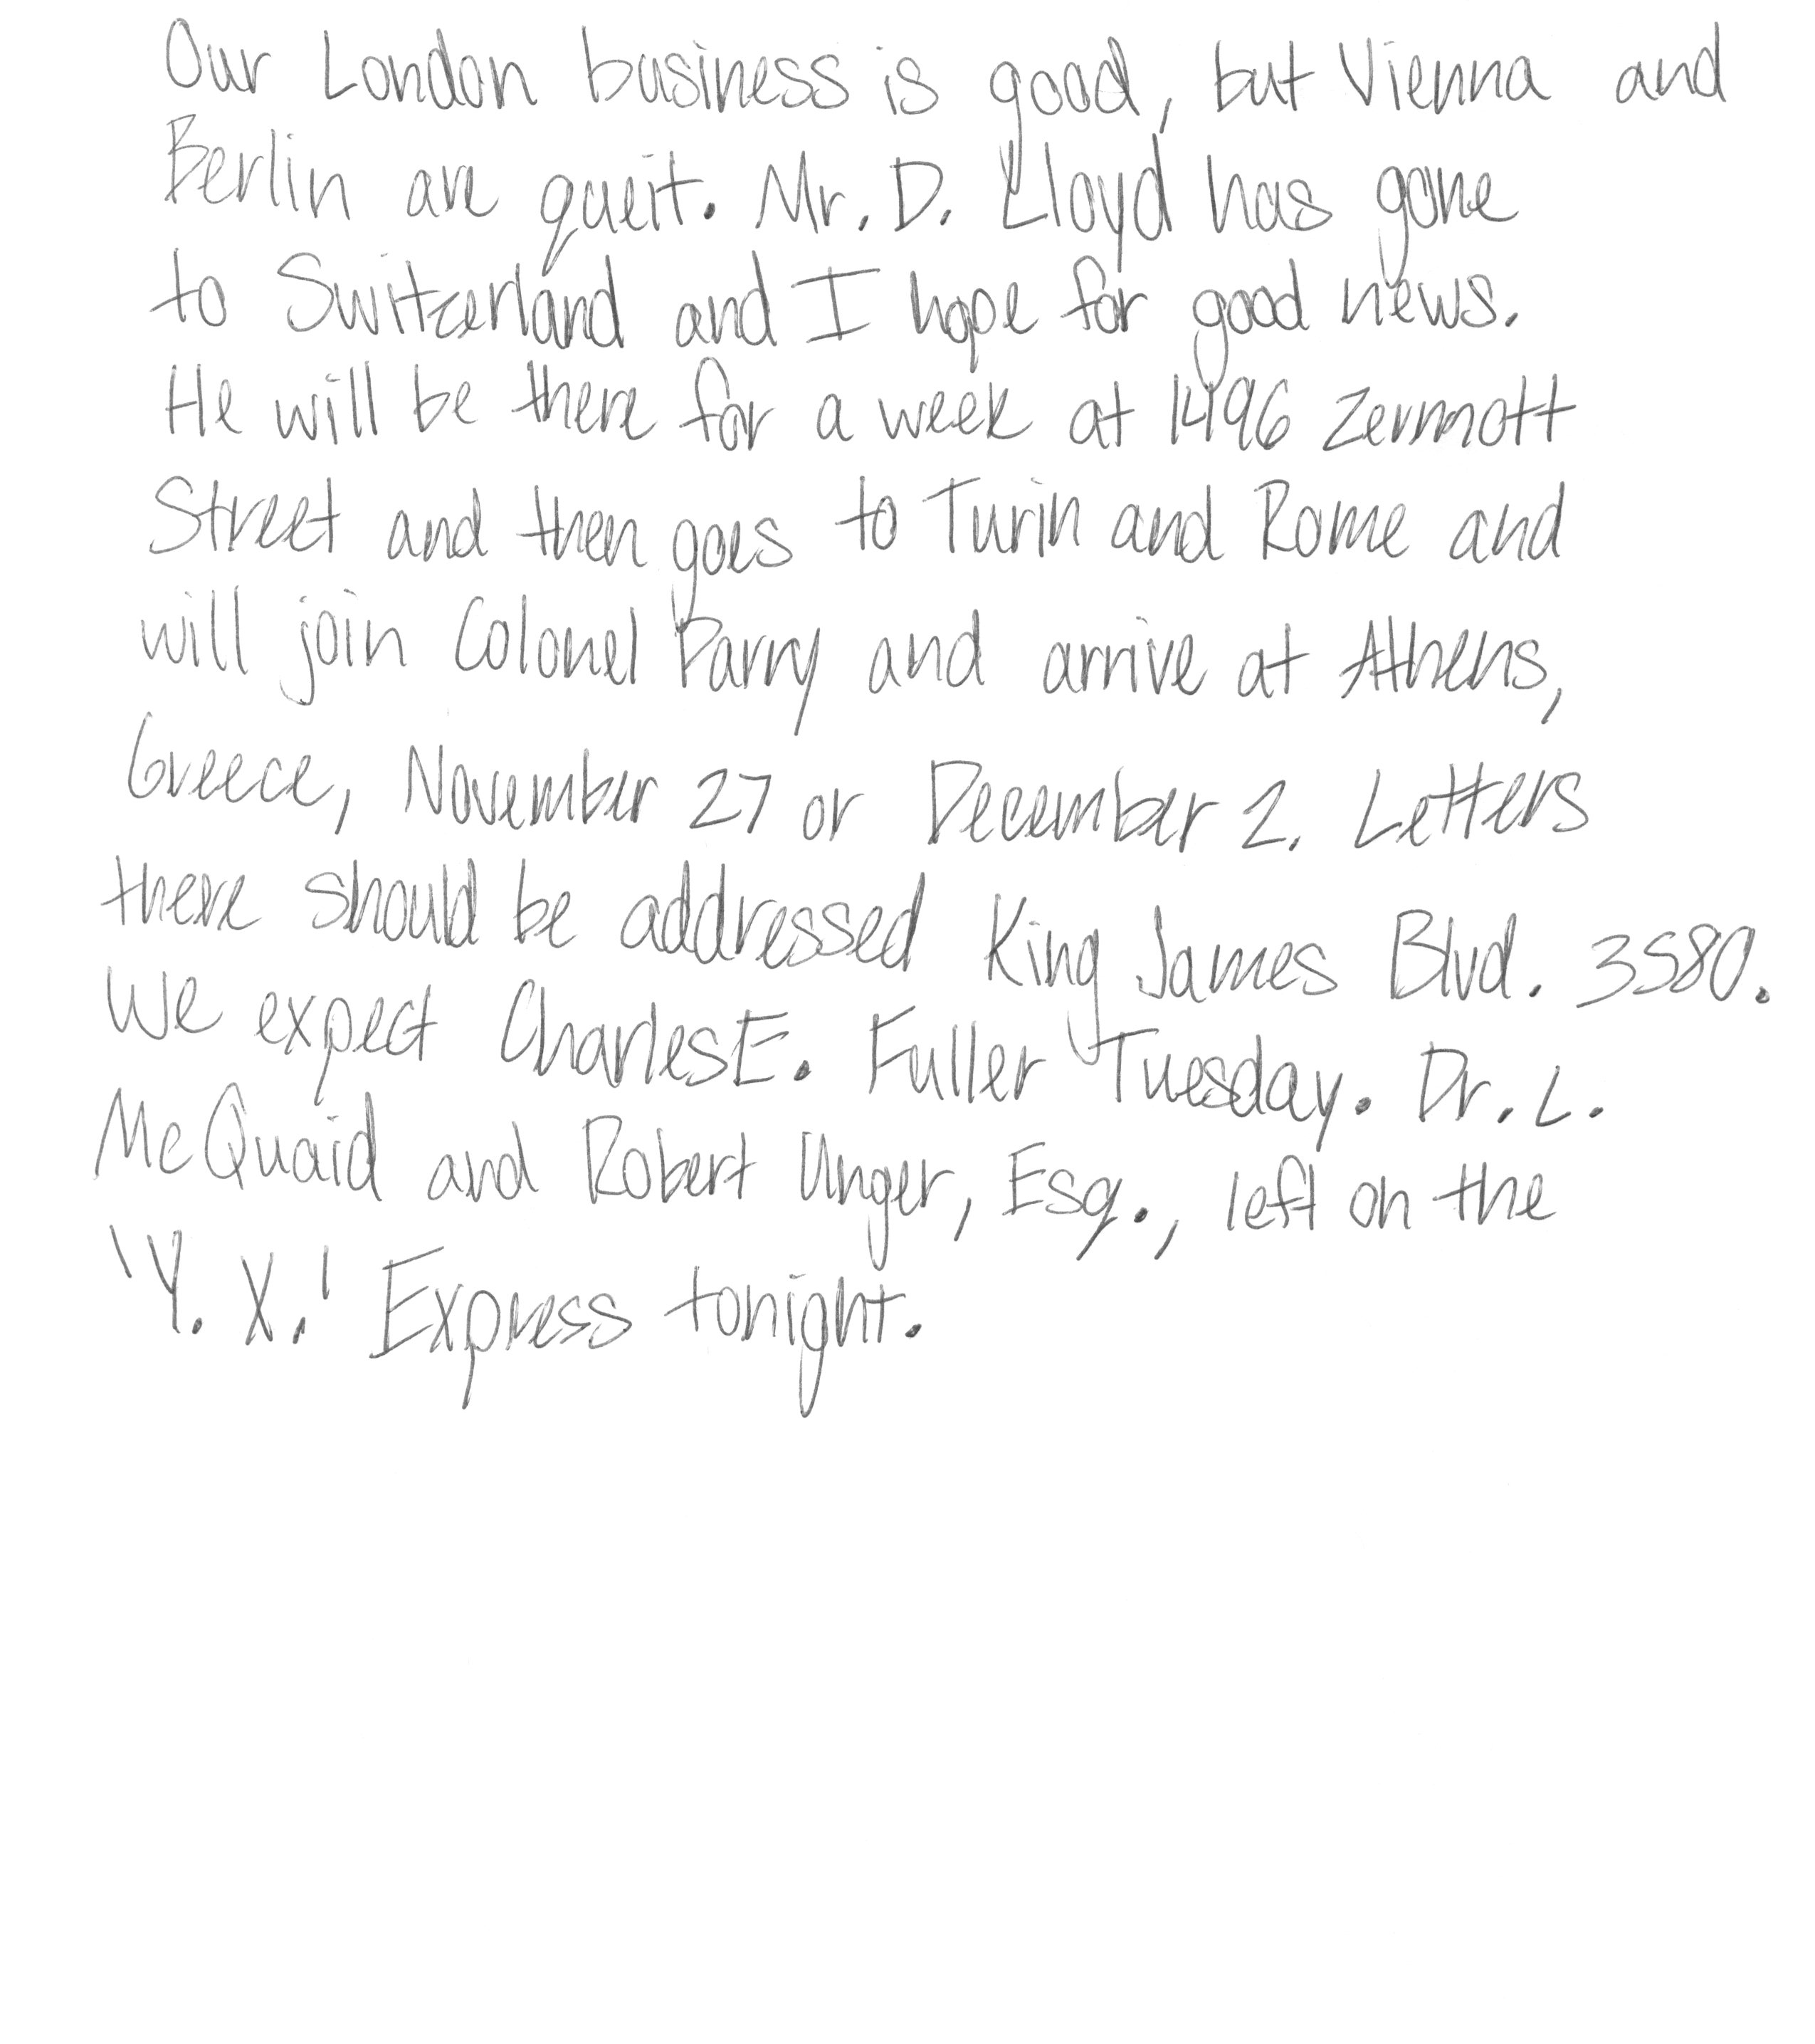 Our London business is good, but Vienna and
Berlin are queit. Mr. D. Lloyd has gone
to Switzerland and I hope for good news.
He will be there for a week at 1496 Zermott
Street and then goes to Turin and Rome and
will join Colonel Parry and arrive at Athens,
Greece, November 27 or December 2. Letters
there should be addressed King James Blvd. 3580.
We expect Charles E. Fuller Tuesday. Dr. L.
McQuaid and Robert Unger, Esq., left on the
'Y. X.' Express tonight.